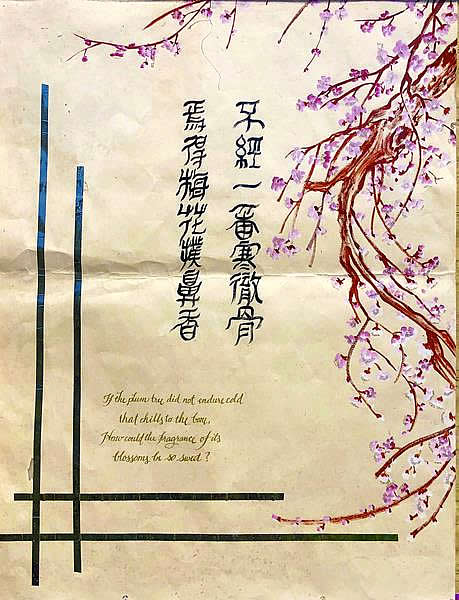 不經一番寒徹骨
焉得梅花撲鼻香
If the plum tree did not endure cold
that chills to the bone,
How could the fragrance of its
blossoms be so sweet?